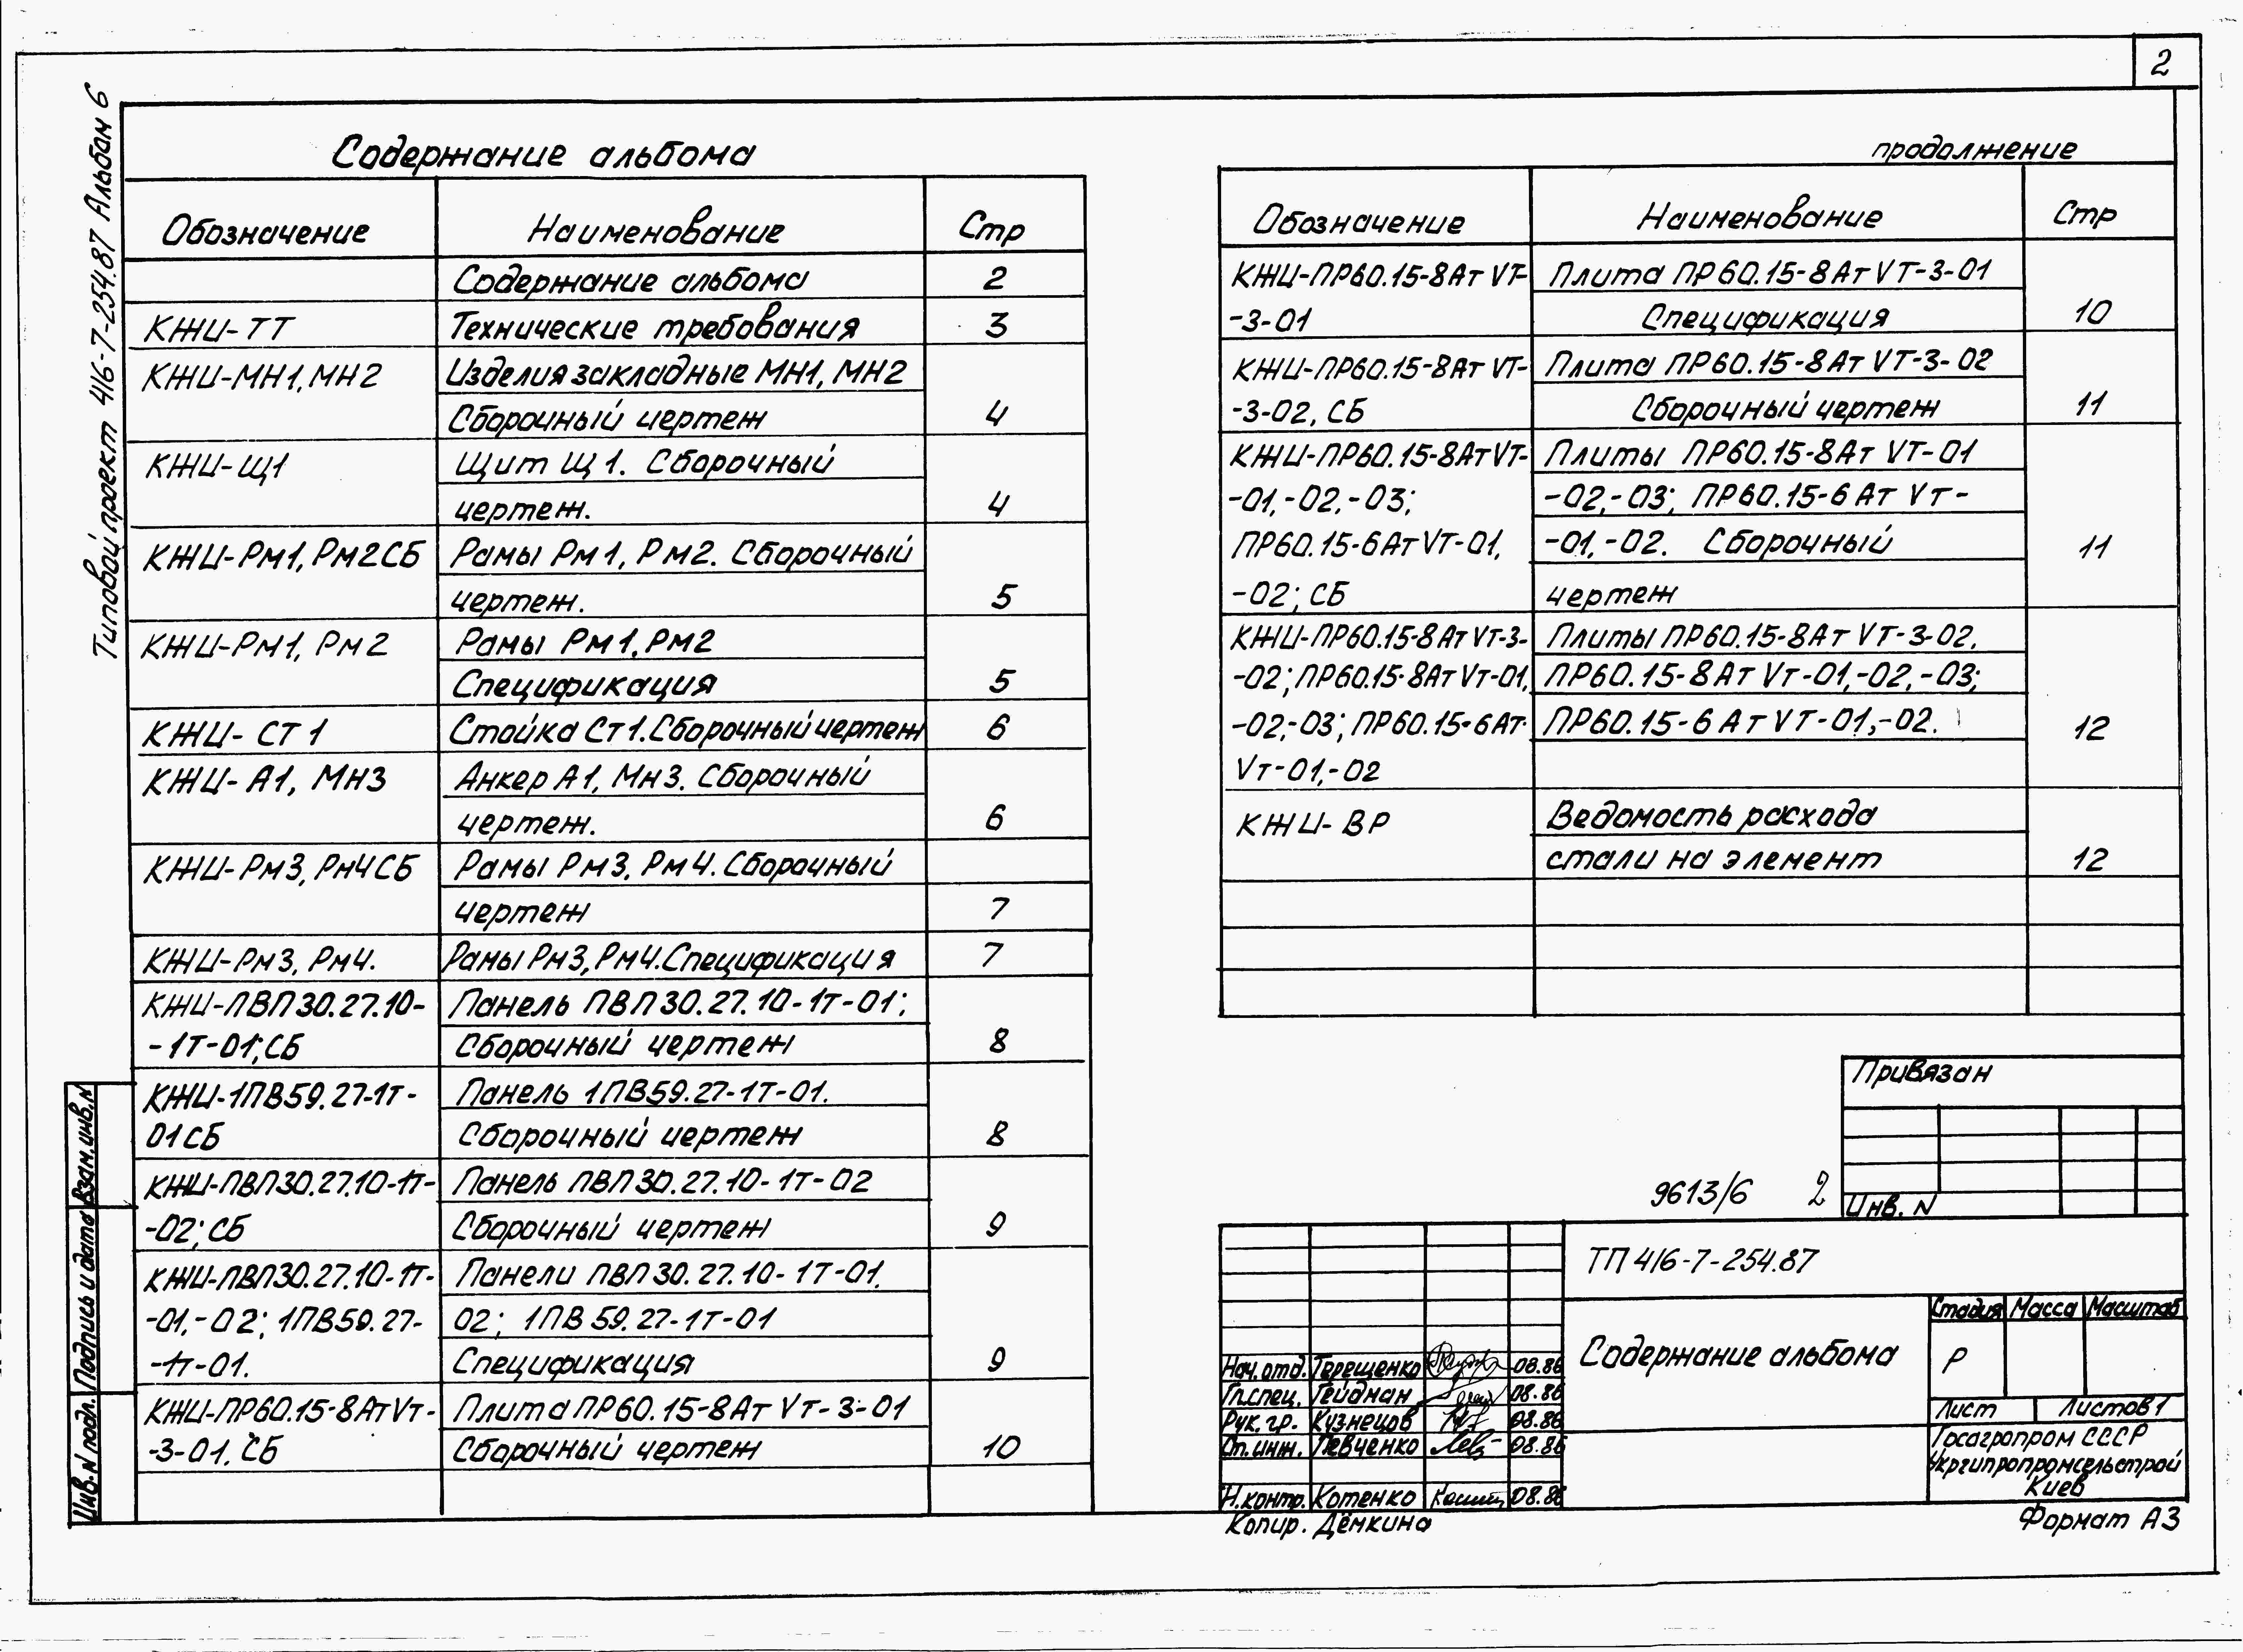 2
Типовой проект 416-7-254.87 Альбом 6
Содержание альбома
Обозначение Наименование Стр
Содержание альбома 2
КЖИ-ТТ Технические требования 3
КЖИ-МН1, МН2 Изделия закладные МН1, МН2
Сборочный чертеж 4
КЖИ-Щ1 Щит Щ1. Сборочный
чертеж. 4
КЖИ-Рм1, Рм2СБ Рамы Рм1, Рм2. Сборочный
чертеж. 5
КЖИ-Рм1, Рм2 Рамы Рм1, Рм2
Спецификация 5
КЖИ-СТ1 Стойка Ст1. Сборочный чертеж 6
КЖИ-А1, Мн3 Анкер А1, Мн3. Сборочный
чертеж. 6
КЖИ-Рм3, Рм4СБ Рамы Рм3, Рм4. Сборочный
чертеж 7
КЖИ-Рм3, Рм4. Рамы Рм3, Рм4. Спецификация 7
КЖИ-ПВП30.27.10- Панель ПВП30.27.10-1т-01;
-1Т-01;СБ Сборочный чертеж 8
КЖИ-1ПВ59.27-1т- Панель 1ПВ59.27-1т-01.
01СБ Сборочный чертеж 8
КЖИ-ПВП30.27.10-1т- Панель ПВП30.27.10-1т-02
-02;СБ Сборочный чертеж 9
КЖИ-ПВП30.27.10-1т- Панели ПВП30.27.10-1Т-01,
-01,-02; 1ПВ59.27- 02; 1ПВ59.27-1т-01
-1т-01. Спецификация 9
КЖИ-ПР60.15-8АтVт- Плита ПР60.15-8Ат Vт-3-01
-3-01. СБ Сборочный чертеж 10
продолжение
Обозначение Наименование Стр
КЖИ-ПР60.15-8Ат VT- Плита ПР60.15-8Ат VT-3-01
-3-01 Спецификация 10
КЖИ-ПР60.15-8Ат VT- Плита ПР60.15-8Ат VT-3-02
-3-02, СБ Сборочный чертеж 11
КЖИ-ПР60.15-8АтVT- Плиты ПР60.15-8Ат VT-01
-01,-02,-03; -02,-03; ПР60.15-6Ат Vт-
ПР60.15-6АтVT-01, -01,-02. Сборочный 11
-02; СБ чертеж
КЖИ-ПР60.15-8Ат Vт-3- Плиты ПР60.15-8Ат VT-3-02,
-02; ПР60.15-8АтVт-01, ПР60.15-8Ат Vт-01,-02,-03;
-02,-03; ПР60.15-6Ат- ПР60.15-6Ат VТ-01,-02. 12
Vт-01,-02
КЖИ-ВР Ведомость расхода
стали на элемент 12
Привязан
Инв. N
9613/6 2
ТП 416-7-254.87
Содержание альбома
Стадия Масса Масштаб
Р
Лист Листов 1
Госагропром СССР
Укргипропромсельстрой
Киев
Нач.отд. Терещенко 08.86
Гл.спец. Гейдман 08.86
Рук.гр. Кузнецов 08.86
Ст.инж. Левченко 08.86
Н.контр. Котенко 08.86
Копир. Дёмкина
Формат А3
Взам.инв.N
Подпись и дата
Инв.N подл.